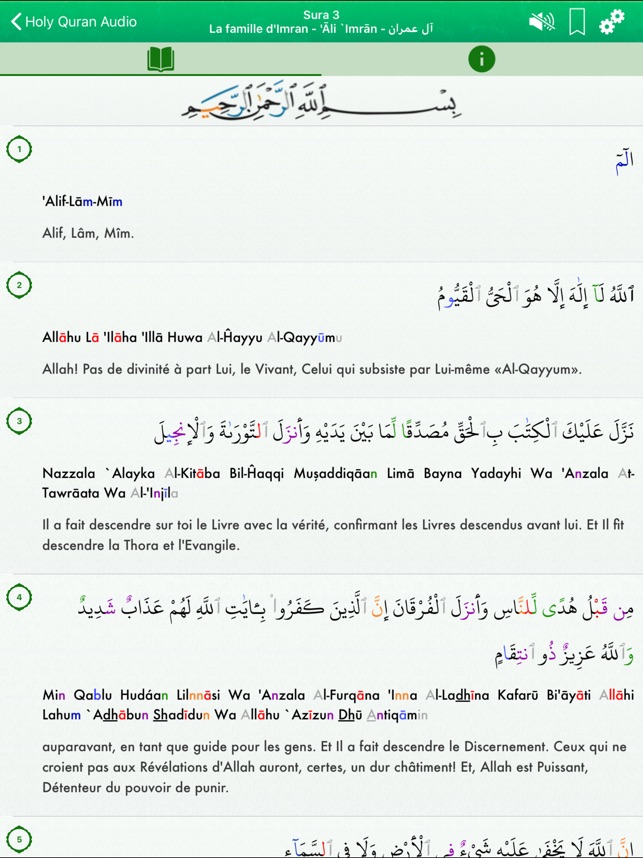 Holy Quran Audio
Sura 3
La famille d'Imran - 'Āli `Imrān - آل عمران
i
بِسْمِ ٱللَّهِ ٱلرَّحْمَٰنِ ٱلرَّحِيمِ
1
الٓمٓ
'Alif-Lām-Mīm
Alif, Lâm, Mîm.
2
ٱللَّهُ لَآ إِلَٰهَ إِلَّا هُوَ ٱلْحَىُّ ٱلْقَيُّومُ
Allāhu Lā 'Ilāha 'Illā Huwa Al-Ĥayyu Al-Qayyūmu
Allah! Pas de divinité à part Lui, le Vivant, Celui qui subsiste par Lui-même «Al-Qayyum».
3
نَزَّلَ عَلَيْكَ ٱلْكِتَٰبَ بِٱلْحَقِّ مُصَدِّقًا لِّمَا بَيْنَ يَدَيْهِ وَأَنزَلَ ٱلتَّوْرَىٰةَ وَٱلْإِنجِيلَ
Nazzala `Alayka Al-Kitāba Bil-Ĥaqqi Muşaddiqāan Limā Bayna Yadayhi Wa 'Anzala At-
Tawrāata Wa Al-'Injīla
Il a fait descendre sur toi le Livre avec la vérité, confirmant les Livres descendus avant lui. Et Il fit
descendre la Thora et l'Evangile.
4
مِن قَبْلُ هُدًى لِّلنَّاسِ وَأَنزَلَ ٱلْفُرْقَانَ إِنَّ ٱلَّذِينَ كَفَرُوا۟ بِـَٔايَٰتِ ٱللَّهِ لَهُمْ عَذَابٌ شَدِيدٌ
وَٱللَّهُ عَزِيزٌ ذُو ٱنتِقَامٍ
Min Qablu Hudáan Lilnnāsi Wa 'Anzala Al-Furqāna 'Inna Al-Ladhīna Kafarū Bi'āyāti Allāhi
Lahum `Adhābun Shadīdun Wa Allāhu `Azīzun Dhū Antiqāmin
auparavant, en tant que guide pour les gens. Et Il a fait descendre le Discernement. Ceux qui ne
croient pas aux Révélations d'Allah auront, certes, un dur châtiment! Et, Allah est Puissant,
Détenteur du pouvoir de punir.
5
إِنَّ ٱللَّهَ لَا يَخْفَىٰ عَلَيْهِ شَىْءٌ فِى ٱلْأَرْضِ وَلَا فِى ٱلسَّمَآءِ